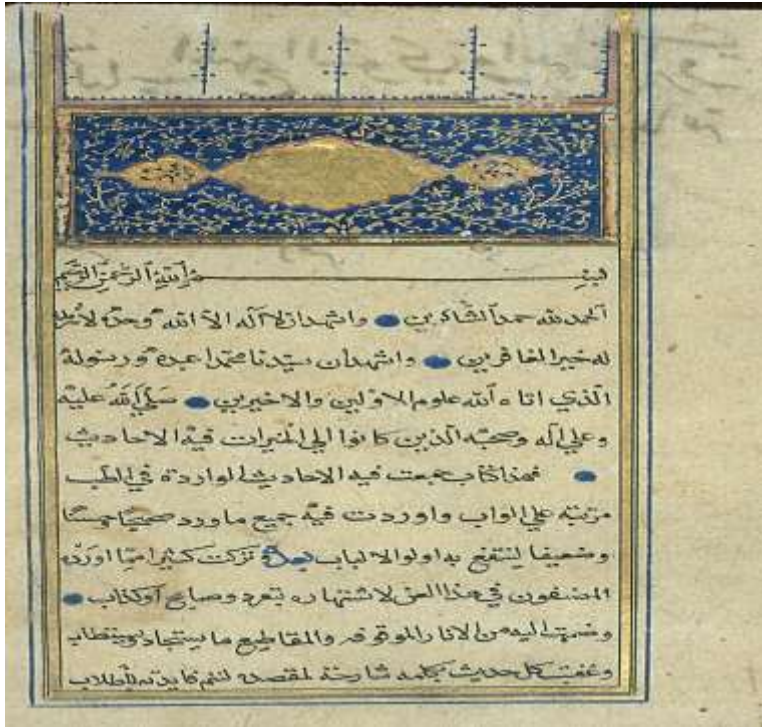 بسم الله الرحمن الرحيم
الحمد لله حمد الشاكرين واشهد ان لا اله الا الله وحده لا شريك
له خير الغافرين واشهد ان سيدنا محمدا عبده ورسوله
الذي اتاه الله علوم الاولين والاخيرين صلي الله عليه
وعلي اله وصحبه الذين كانوا الي الخيرات فيه الاحاديث
فهذا كتاب جمعت فيه الاحاديث الواردة في الطب
مرتبه علي ابواب واوردت فيه جميع ماورد صحيحا حسنا
وضعيفا لينتفع به اولوا الالباب وتركت كثيرا مما اورده
المصنفون في هذا الفن لاشتهاره بتفرد وضاع او كذاب
وضممت اليه من الاثار الموقوفه والمقاطيع ما يستجاد
كل حديث بكلمه شارحة لمقصده لتتم فايدته للطلاب